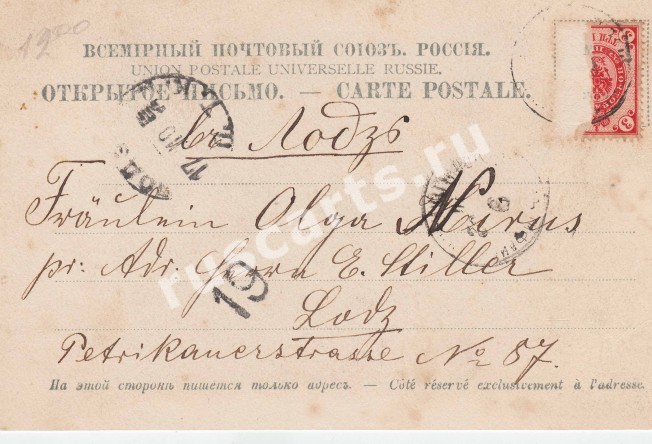 ВСЕМІРНЫЙ ПОЧТОВЫЙ СОЮЗЪ. РОССІЯ.
UNION POSTALE UNIVERSELLE RUSSIE.
ОТКРЫТОЕ ПИСЬМО. — CARTE POSTALE.
въ Лодзь
Fräulein Olga
pr. Adr. Herrn E. Stiller
Lodz
Petrikauerstrasse No 87.
19
3
На этой сторонѣ пишется только адресъ. — Côté réservé exclusivement à l'adresse.
ruscarts.ru